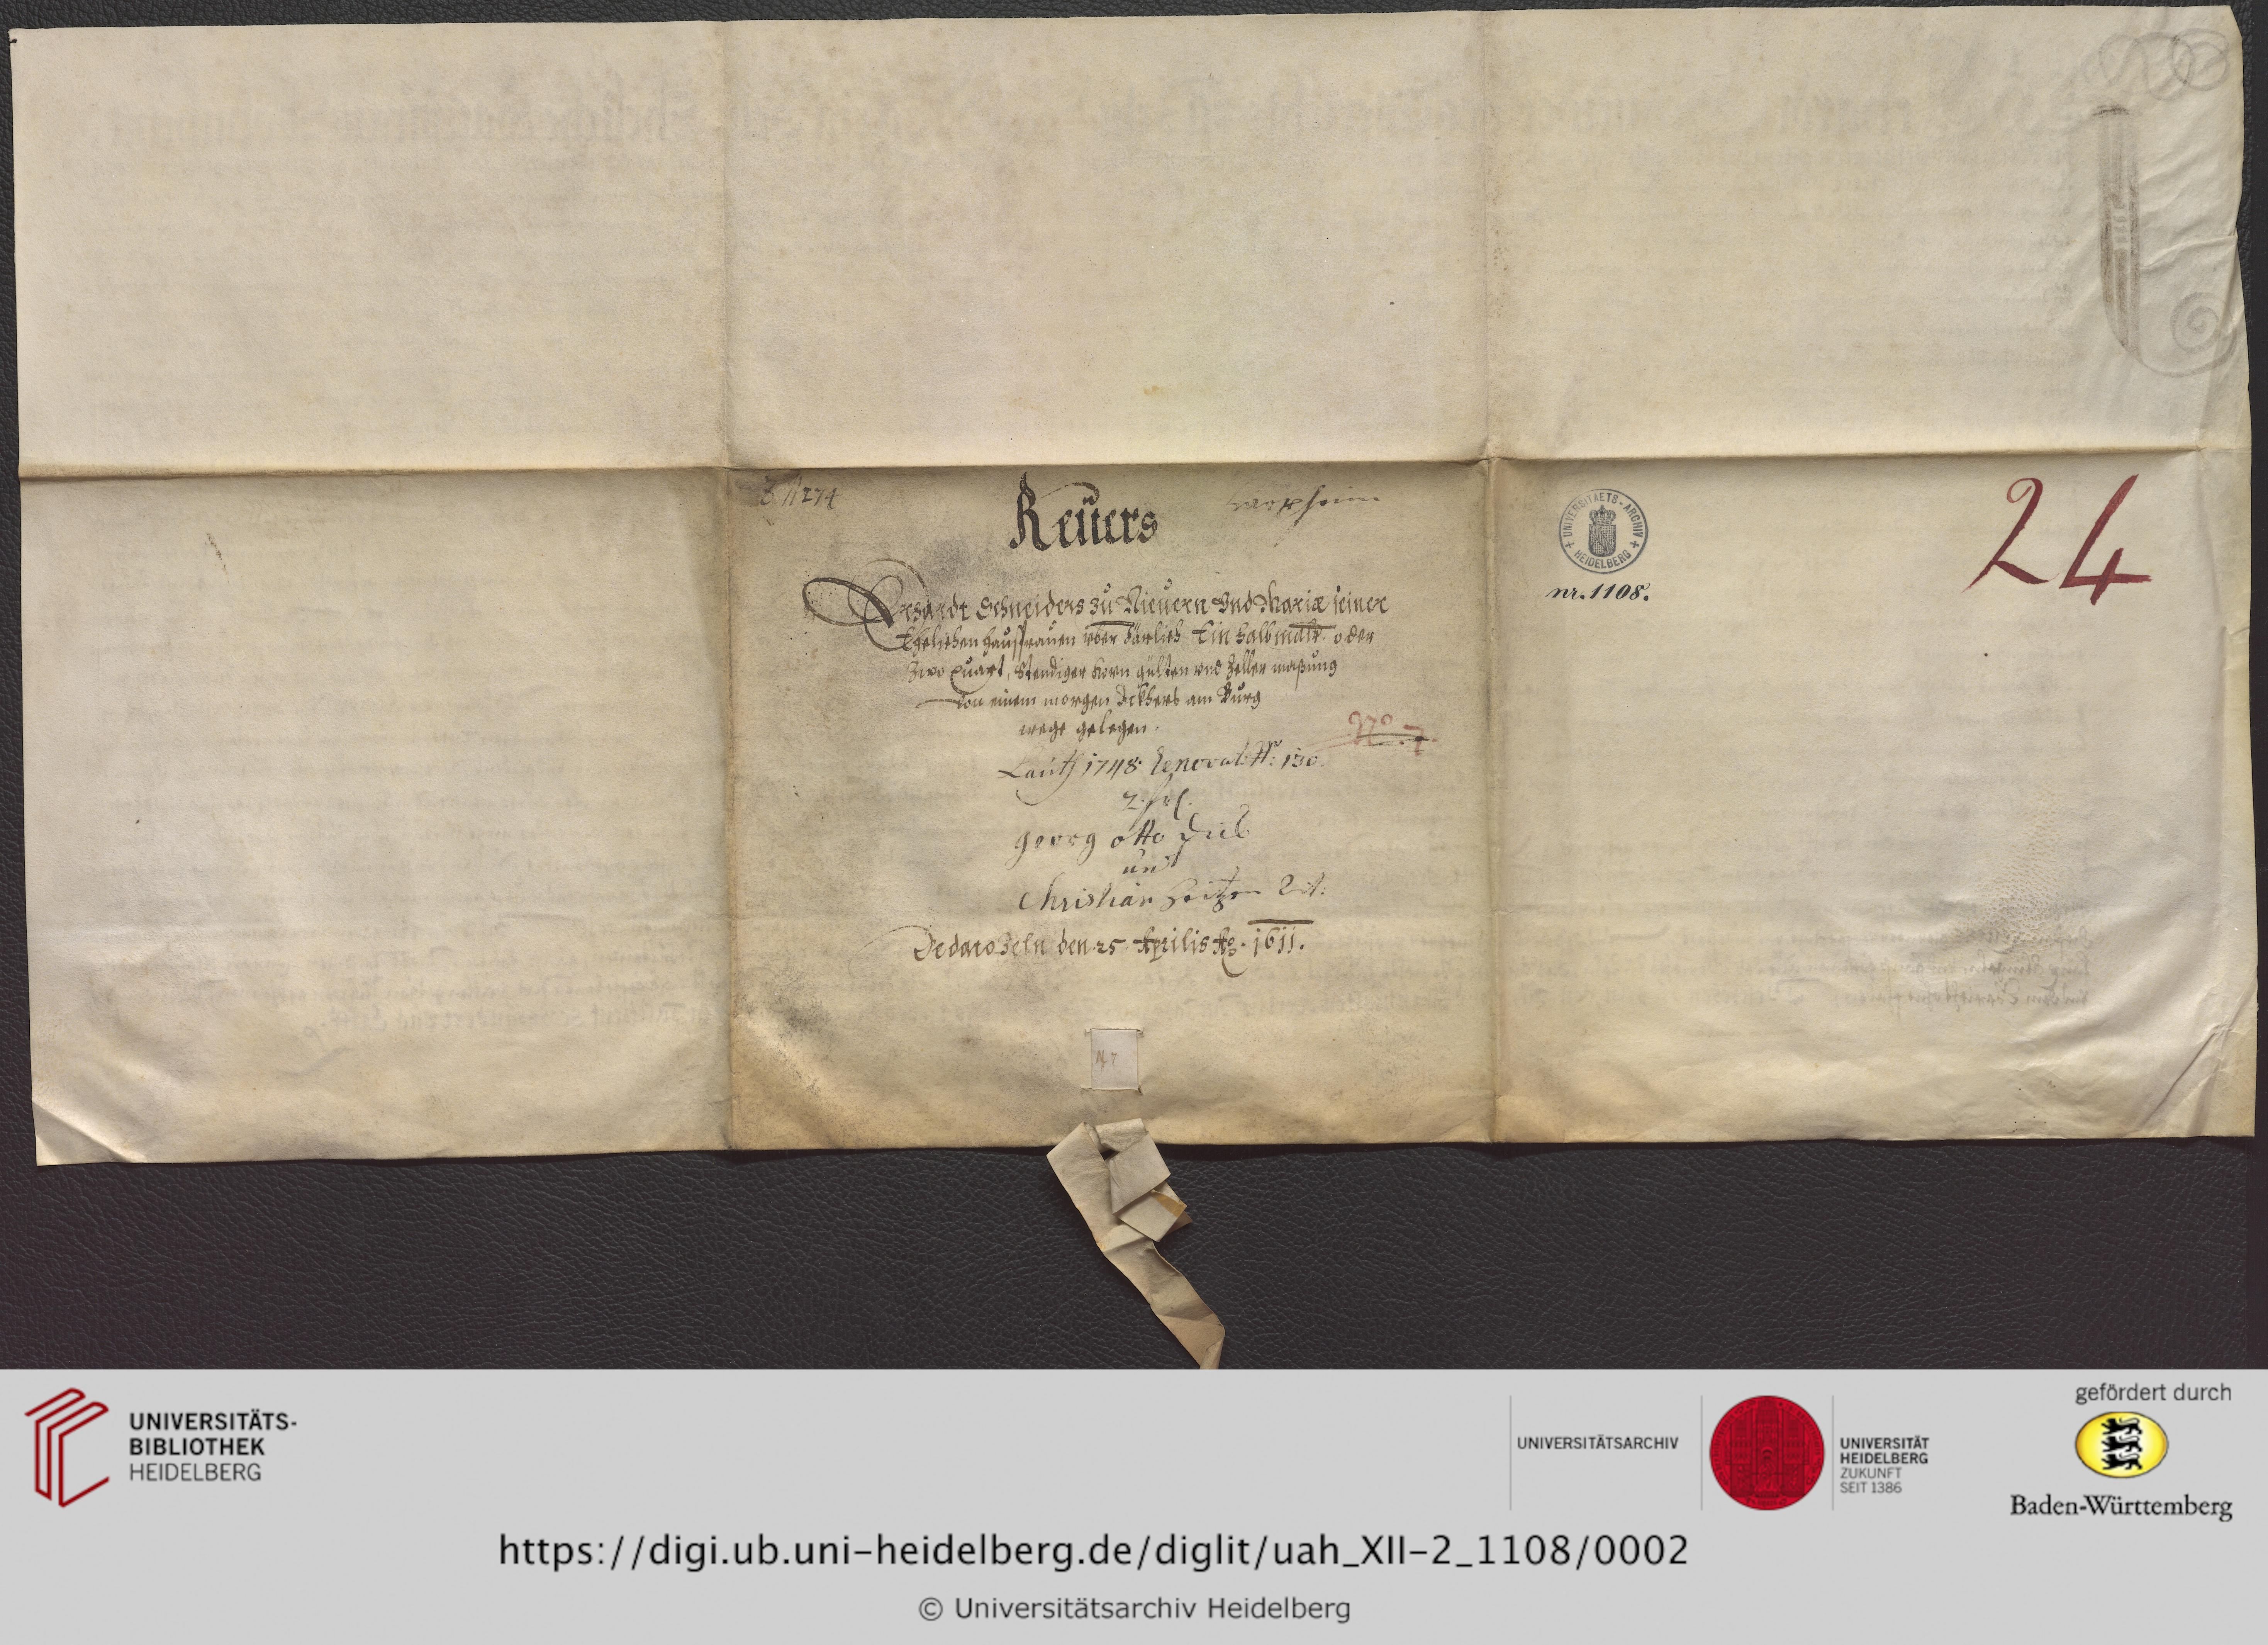 Z N 274
Reüers
Erhardt Schneiders zů Nieuern Vnd Mariæ seiner
Ehelichen Haussfrauen vber Järlich Ein halb maltr. oder
Zwo quart, Stendiger Korn gülten vnd Zeller maßung
von einem morgen Ackhers am Burg
wege gelegen.
Nº 7
Lauth 1748: Renovat: Nr: 130.
georg otto
und
Christian
De dato Zeln den 25 Aprilis Aº. 1611.
N 7
UNIVERSITAETS-ARCHIV HEIDELBERG
nr. 1108.
24
UNIVERSITÄTS-
BIBLIOTHEK
HEIDELBERG
UNIVERSITÄTSARCHIV
UNIVERSITÄT
HEIDELBERG
ZUKUNFT
SEIT 1386
gefördert durch
Baden-Württemberg
https://digi.ub.uni-heidelberg.de/diglit/uah_XII-2_1108/0002
© Universitätsarchiv Heidelberg